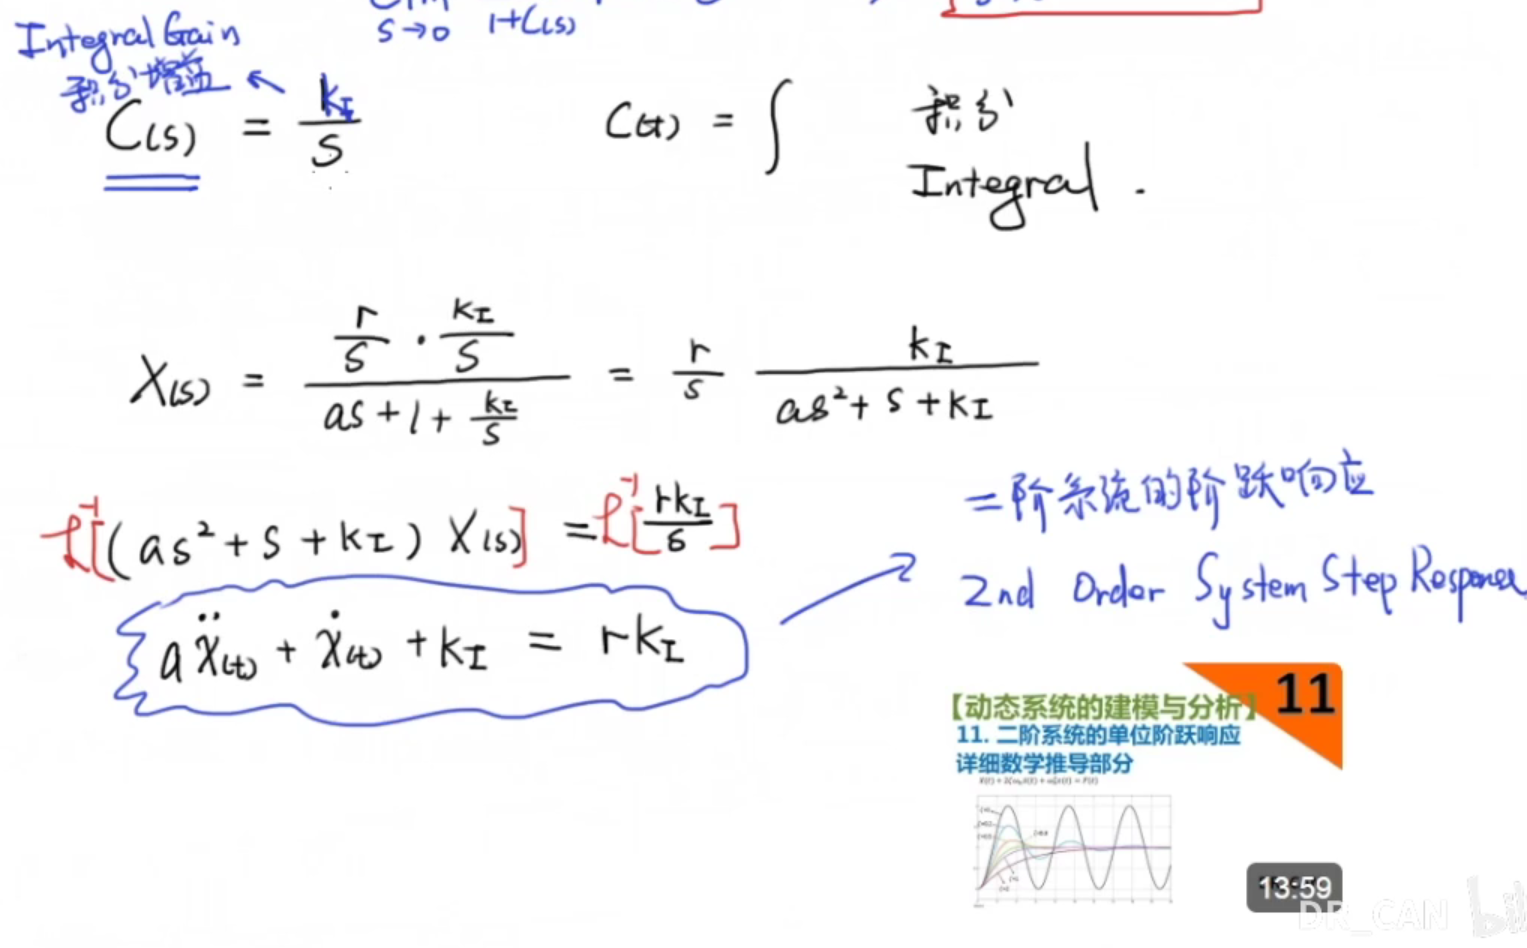 Integral Gain
积分增益
s→0 1+C(s)
C(s) = k_I / s
C(t) = ∫ 积分
Integral .
X(s) = (r/s · k_I/s) / (as + 1 + k_I/s) = r/s k_I / (as² + s + k_I)
ℒ⁻¹[(as² + s + k_I) X(s)] = ℒ⁻¹[rk_I / s]
aẍ(t) + ẋ(t) + k_I = rk_I
二阶系统的阶跃响应
2nd Order System Step Response
11
【动态系统的建模与分析】
11. 二阶系统的单位阶跃响应
详细数学推导部分
13:59
DR_CAN